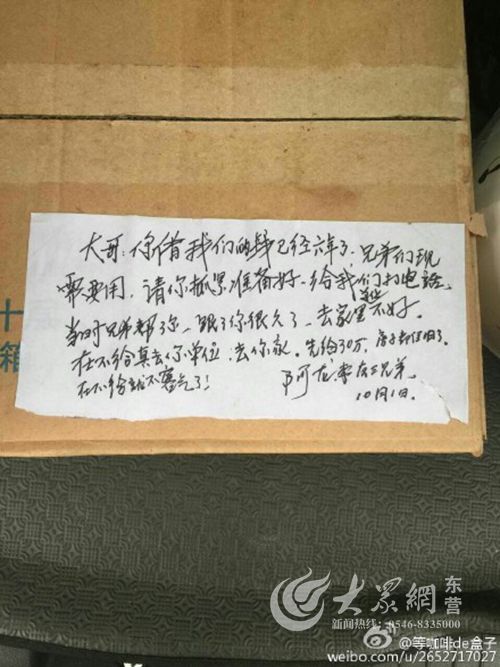 大哥：你借我们的钱已经六年了，兄弟们现
需要用，请你抓紧准备好，给我们打电话，
当时兄弟帮了你，跟了你很久了，去家里不好。
在不给真去你单位，去你家，先给30万，房子都住旧了。
在不给就不客气了！
阿龙 兄弟
10月1日
十
箱
大众網 东营
新闻热线：0546-8335000
@等咖啡de盒子
weibo.com/u/2652717027